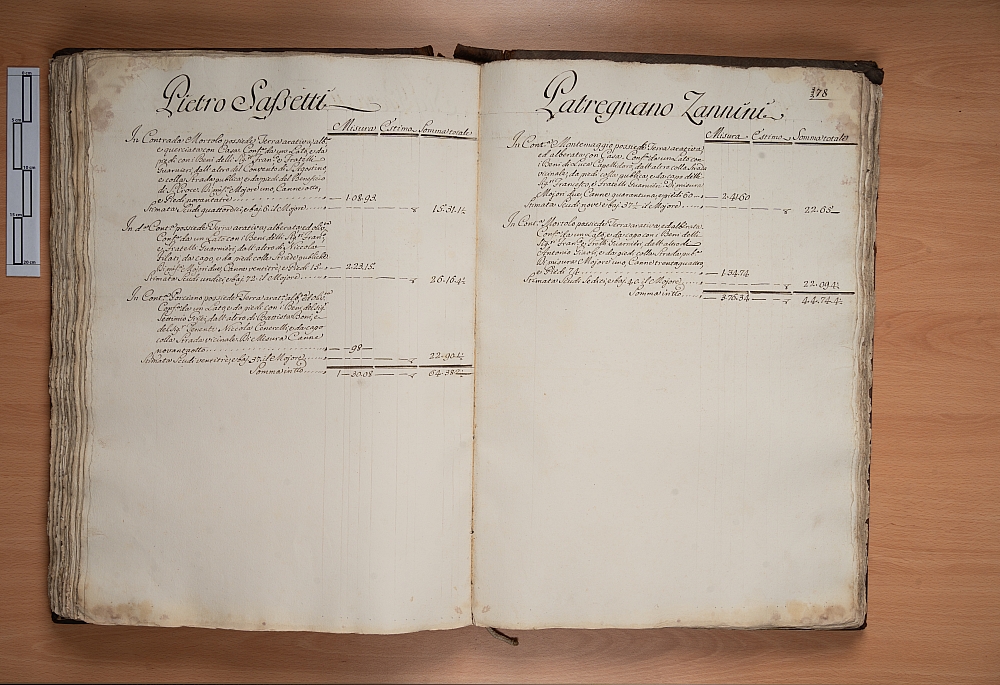 Pietro Saſsetti
Misura Estimo Somma totale
In Contrada Mortolo possiede Terra arativa, alb.
e querciata con Casa Conf. da un Lato, e da
piedi con i Beni delli Sig. Fran. e Fratelli
Guarnieri, dall'altro del Convento di S. Agostino,
e colla Strada publica, e da piedi del Beneficio
di S. Croce Di Mis. Mojore uno, Canne otto,
e Piedi novantatre 1.08.93
Stimata Scudi quattordici, e baj. 6. il Mojore 15.31.1½
In d. Cont. possiede Terra arativa, alberata, ed oliv.
Conf. da un Lato con i Beni delli Sig. Fran.
e Fratelli Guarnieri, dall'altro di Niccola
Pilati, da capo, e da piedi colle Strade publiche
Di Mis. Mojori due, Canne ventitre, e Piedi 15 2.23.15
Stimata Scudi undici, e baj. 72. il Mojore 26.16.4½
In Cont. Porciano possiede Terra arat. alb. ed oliv.
Conf. da un Lato, e da piedi con i Beni del Sig.
Settimio dall'altro di Battista Boni, e
del Sig. Tenente Niccola Cenerelli, e da capo
colla Strada vicinale Di Misura Canne
novantotto 98
Stimata Scudi ventitre, e baj. 37. il Mojore 22.90½
Somma in tto 30.08 64.38½
Patregnano Zannini
178
Misura Estimo Somma totale
In Cont. Montemaggio possiede Terra arativa,
ed alberata con Casa Conf. da un Lato con
i Beni di Luca Capelletti, dall'altro colla Strada
vicinale, da piedi colla publica, e da capo delli
Sig. Francesco, e Fratelli Guarnieri Di misura
Mojori due, Canne quarantuna, e piedi 60 2.41.60
Stimata Scudi nove, e baj. 37½ il Mojore 22.65
In Cont. Mortolo possiede Terra arativa, ed alberata
Conf. da un Lato, e da capo con i Beni delli
Sig. Fran. e Frelli Guarnieri, dall'altro di
Antonio e da piedi colla Strada pub.
Di misura Mojore uno, Canne trentaquattro,
e Piedi 74 1.34.74
Stimata Scudi Sedici, e baj. 40. il Mojore 22.09.4½
Somma in tto 3.76.34 44.74.4½